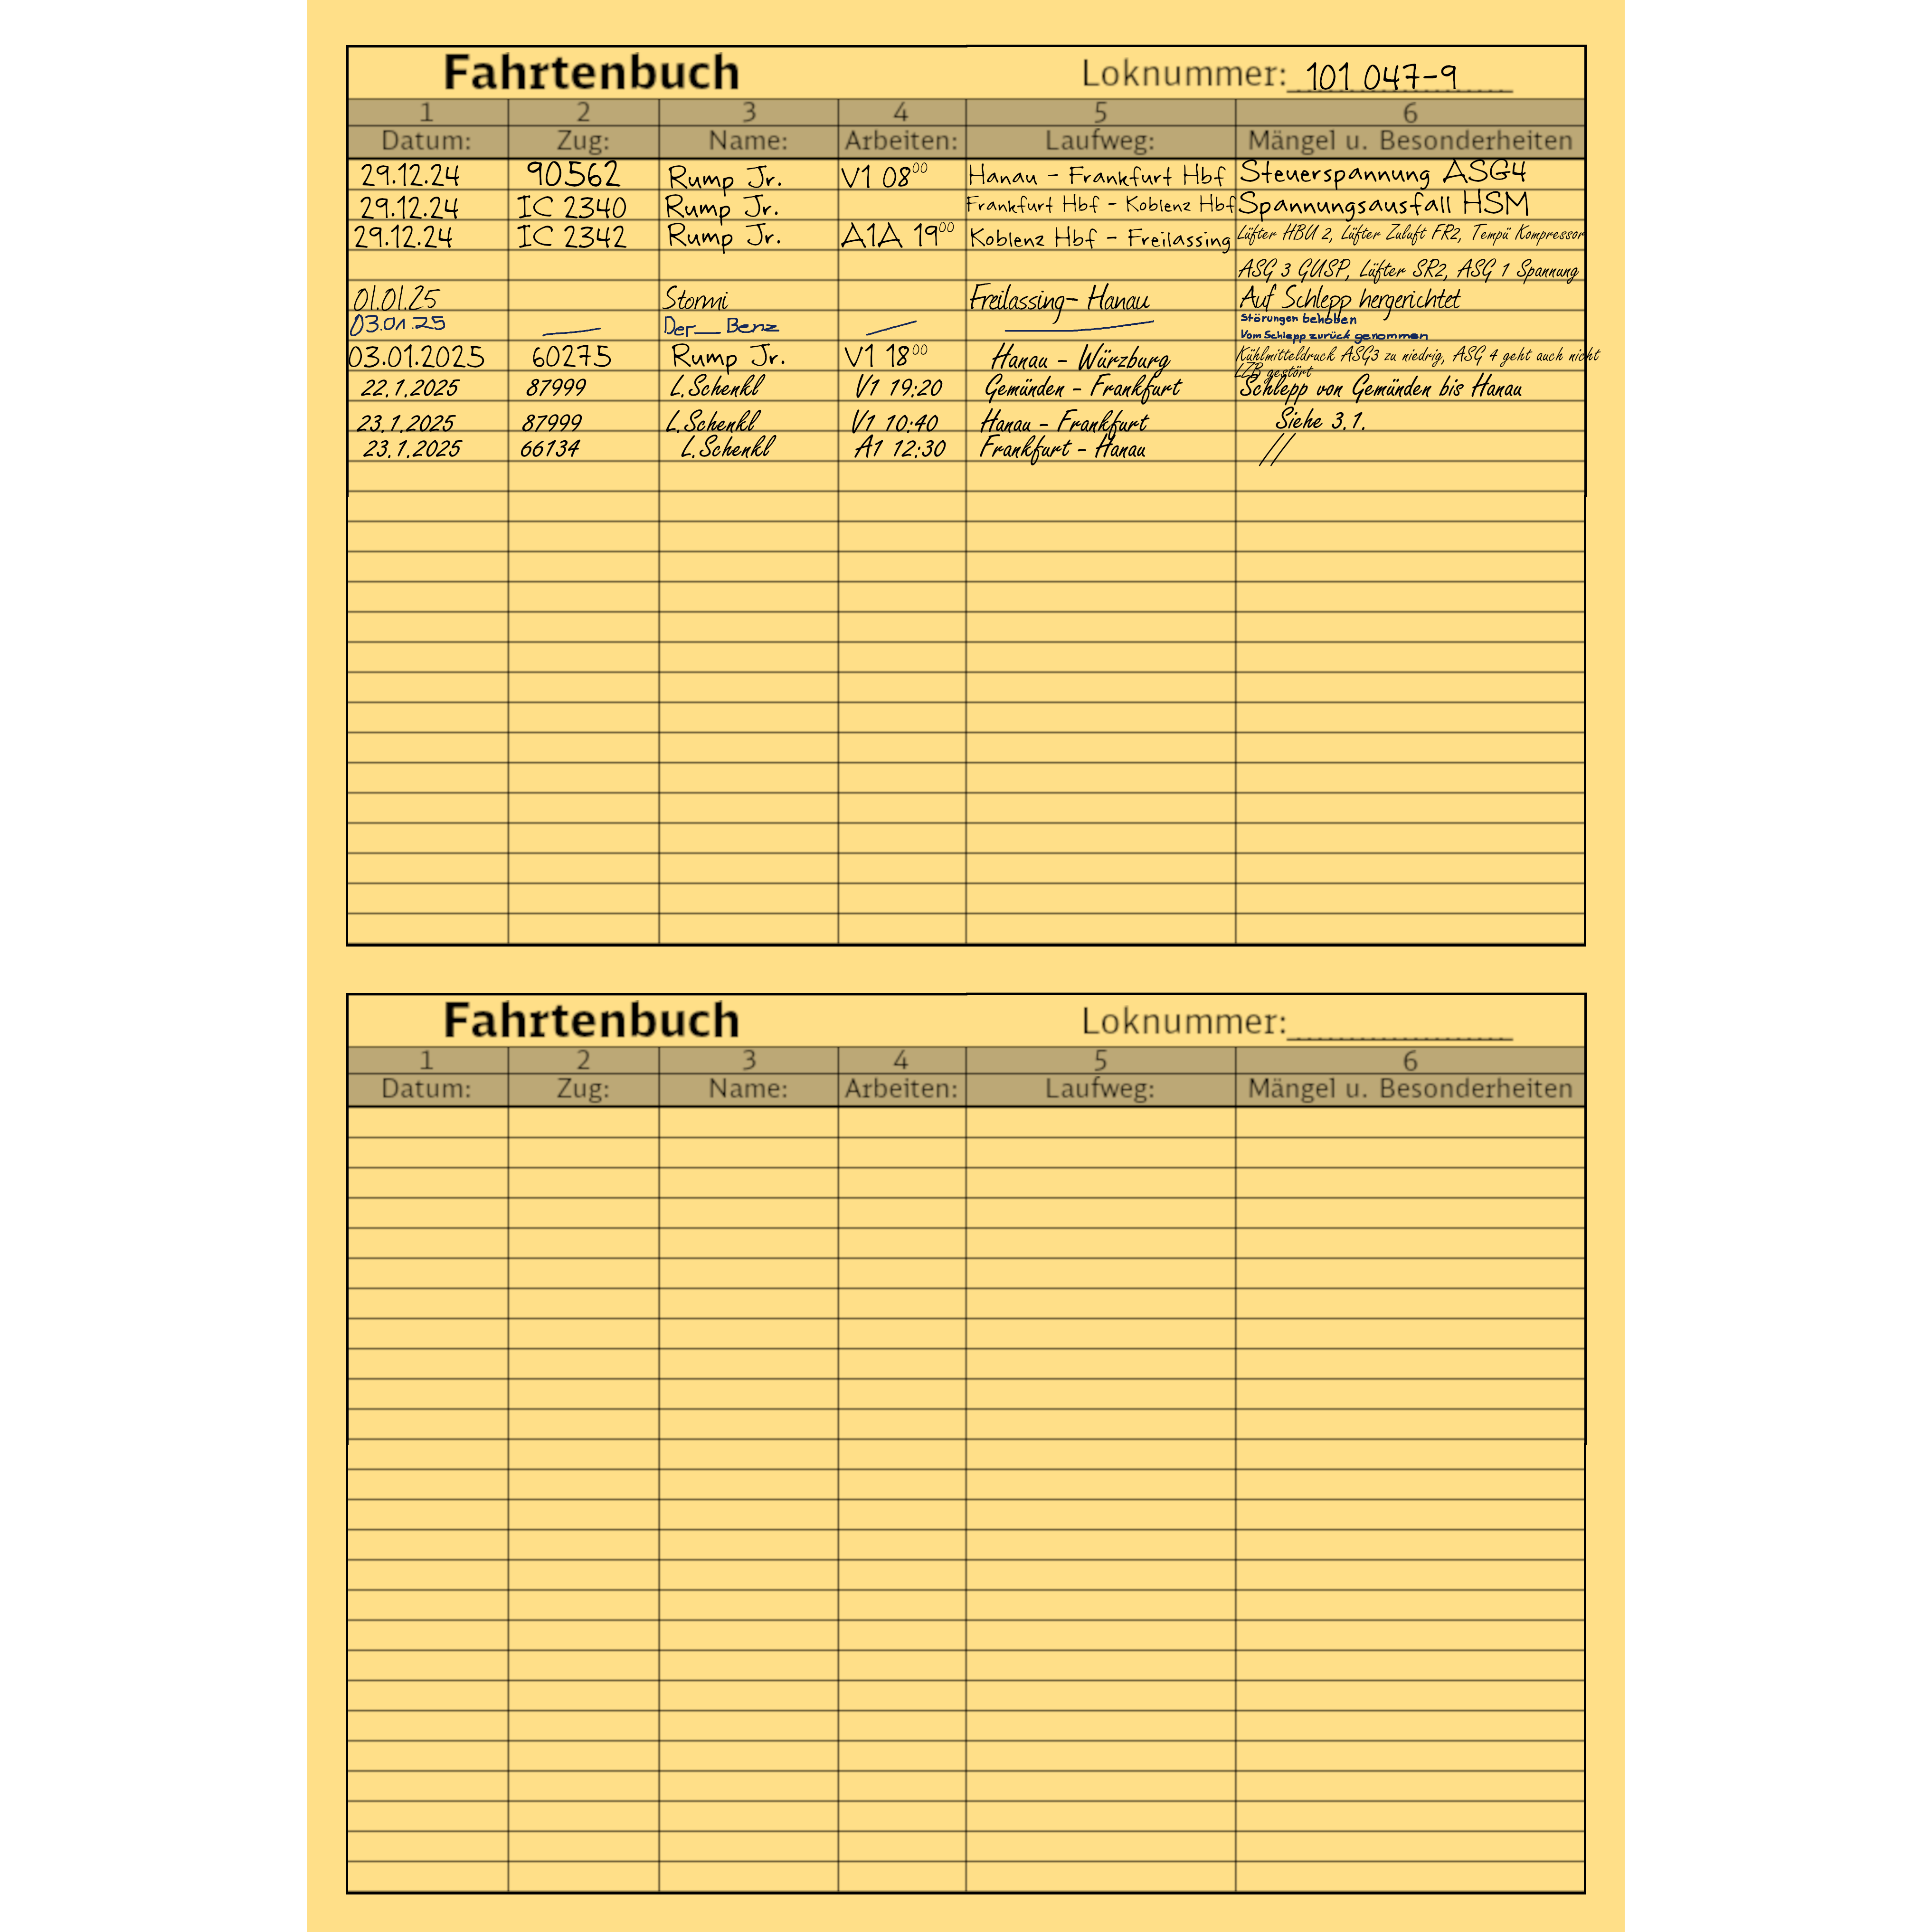 Fahrtenbuch Loknummer: 101 047-9
1 2 3 4 5 6
Datum: Zug: Name: Arbeiten: Laufweg: Mängel u. Besonderheiten
29.12.24 90562 Rump Jr. V1 08⁰⁰ Hanau - Frankfurt Hbf Steuerspannung ASG4
29.12.24 IC 2340 Rump Jr. Frankfurt Hbf - Koblenz Hbf Spannungsausfall HSM
29.12.24 IC 2342 Rump Jr. A1A 19⁰⁰ Koblenz Hbf - Freilassing Lüfter HBU 2, Lüfter Zuluft FR2, Tempü Kompressor
ASG 3 GUSP, Lüfter SR2, ASG 1 Spannung
01.01.25 Stormi Freilassing- Hanau Auf Schlepp hergerichtet
03.01.25 Der__Benz Störungen behoben
Vom Schlepp zurück genommen
03.01.2025 60275 Rump Jr. V1 18⁰⁰ Hanau - Würzburg Kühlmitteldruck ASG3 zu niedrig, ASG 4 geht auch nicht
LZB gestört
22.1.2025 87999 L.Schenkl V1 19:20 Gemünden - Frankfurt Schlepp von Gemünden bis Hanau
23.1.2025 87999 L.Schenkl V1 10:40 Hanau - Frankfurt Siehe 3.1.
23.1.2025 66134 L.Schenkl A1 12:30 Frankfurt - Hanau //
Fahrtenbuch Loknummer:
1 2 3 4 5 6
Datum: Zug: Name: Arbeiten: Laufweg: Mängel u. Besonderheiten